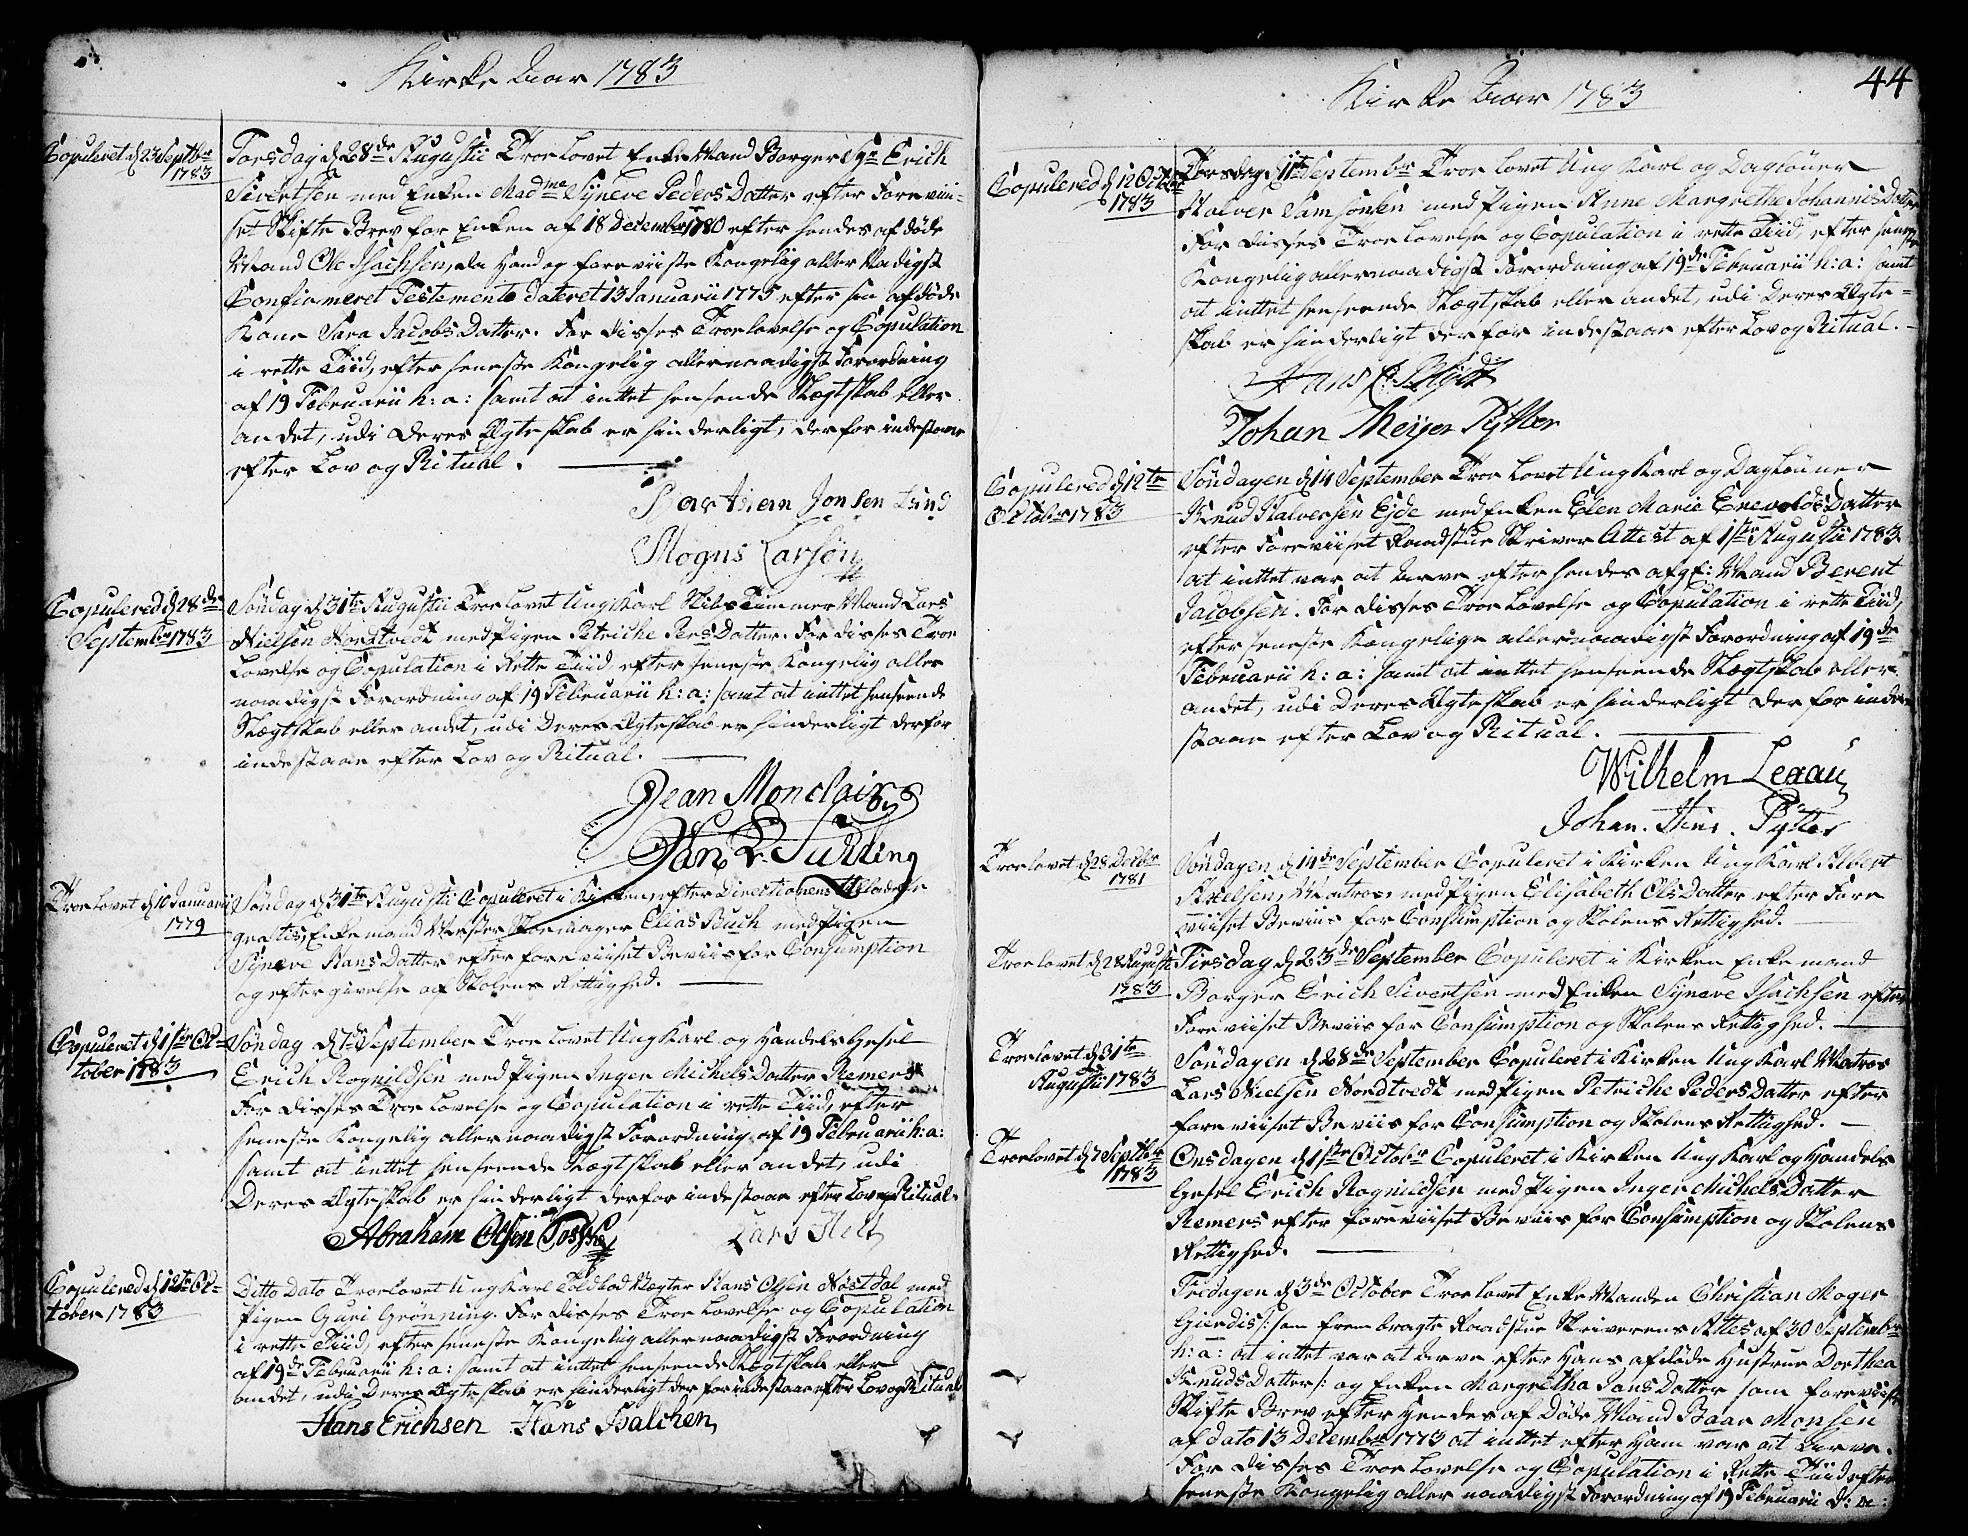 Kirke Aar 1783
Copuleret d 23 Septbr
1783
Torsdag d 28de Augustii Troelovet Enke Mand Borger Sr Erich
Sivertsen med Enken Madme Syneve Peders Datter efter Foreviii-
set Skifte Brev for Enken af 18 December 1780 efter hendes afdøde
Mand Ole Isachsen, da Hand og foreviiste Kongelig aller Nadigst
Confirmeret Testemente dateret 13 Januarii 1775 efter sin afdøde
Kone Sara Jacobs Datter. For disses Troelovelse og Copulation
i rette Tiid, efter seneste Kongelig allernaadigst Forordning
af 19 Februarii h: a: samt at intet henseende Slægtskab eller
andet, udi Deres Ægteskab er hinderligt, derfor indestaae
efter Lov og Ritual.
Bastian Jonsen Lund
Mogns Larsøn
Copulered d 28de
September 1783
Søndag d 31te Augustii Troelovet Ung Karl Skibs Timmer Mand Lars
Nielsen Nordtvedt med Pigen Petriche Pers Datter. For disses Troe
Lovelse og Copulation i Rette Tiid efter seneste Kongelig aller
naadigst Forordning af 19 Februarii h: a: samt at intet henseende
Slægtskab eller andet, udi Deres Ægteskab er hinderligt derfor
indestaae efter Lov og Ritual.
Jean Monclair
Troelovet d 10 Januari
1779
Søndag d 31te Augustii Copuleret i Kirken, efter Directionens Tiladelse
gratis, Enkemand Mester Skoemager Elias Buch med Pigen
Syneve Hans Datter efter foreviiset Beviis for Consumption
og eftergivelse af Skolens Rettighed.
Copuleret d 1ste Oc-
tober 1783
Søndag d 7de September Troelovet Ung Karl og Handels Gesel
Erich Rognildsen med Pigen Inger Michels Datter Remers
For disses Troe Lovelse og Copulation i rette Tiid, efter
seneste Kongelig allernaadigst Forordning af 19 Februarii h: a:
samt at intet henseende Slægtskab eller andet, udi
Deres Ægteskab er hinderligt derfor indestaae efter Lov og Ritual.
Abraham Olsen
Copulered d 12te Oc-
tober 1783
Ditto Dato Troelovet Ung Karl Toldbod Vægter Hans Olsen Nøstdal med
Pigen Guri Grønning. For disses Troe Lovelse og Copulation
i rette Tiid, efter seneste Kongelig allernaadigst Forordning
af 19de Februarii h: a: samt at intet henseende Slægtskab eller
andet, udi Deres Ægteskab er hinderligt derfor indestaae efter Lov og Ritual
Hans Erichsen Hans Balchen
Kirke Aar 1783
44
Copulered d 12 Octbr
1783
Torsdag d 11te September Troelovet Ung Karl og Dagløner
Halver Samsonsen med Pigen Anne Margrethe Johannis Datter
For disses Troe Lovelse og Copulation i rette Tiid, efter seneste
Kongelig allernaadigst Forordning af 19de Februarii h: a: samt
at intet henseende Slægtskab eller andet, udi Deres Ægte-
skab er hinderligt derfor indestaae efter Lov og Ritual.
Johan Meyer Pytter
Copulered d 12te
Octobr 1783
Søndagen d 14 September Troe Lovet Ung Karl og Dagløuner
Knud Halversen Eyde med Enken Elen Marie Enevolds Datter
efter Foreviiset Raadstue Skriver Attest af 1ste Augustii 1783
at intet var at Arve efter hendes afg: Mand Berent
Jacobsen. For disses Troe Lovelse og Copulation i rette Tiid,
efter seneste Kongelige allernaadigst Forordning af 19de
Februarii h: a: samt at intet henseende Slægtskab eller
andet, udi Deres Ægteskab er hinderligt derfor inde-
staae efter Lov og Ritual.
Wilhelm Lexau
Johan Pytter
Troelovet d 28 Decbr
1781
Søndagen d 14de September Copuleret i Kirken Ung Karl Albert
Axelsen, Matros, med Pigen Elisabeth Ols Datter efter Fore
viiset Beviis for Consumption og Skolens Rettighed.
Troelovet d 28 Augusti
1783
Tirsdag d 23de September Copuleret i Kirken Enkemand
Borger Erich Sivertsen med Enken Syneve Isachsen efter
Foreviiset Beviis for Consumption og Skolens Rettighed.
Troelovet d 31te
Augustii 1783
Søndagen d 28de September Copuleret i Kirken Ung Karl Matros
Lars Nielsen Nordtvedt med Pigen Petriche Peders Datter efter
foreviiset Beviis for Consumption og Skolens Rettighed.
Troelovet d 7 Septbr
1783
Onsdagen d 1ste Octobr Copuleret i Kirken Ung Karl og Handels
Gesel Erich Rognildsen med Pigen Inger Michels Datter
Remers efter foreviiset Beviis for Consumption og Skolens
Rettighed.
Fredagen d 3de October Troelovet Enke Manden Christian Moger
Giærdis /: som frembragte Raadstue Skriverens Attest af 30 Septembr
h: a: at intet var at Arve efter Hans afdøde Hustrue Dorthea
Knuds Datter :/ og Enken Margretha Jans Datter som foreviiste
Skifte Brev efter Hendes afdøde Mand Baar Monsen
af dato 13 Decembr 1773 at intet efter Ham var at Arve.
For disses Troe Lovelse og Copulation i Rette Tiid efter
seneste Kongelig allernaadigst Forordning af 19 Februarii d: a: